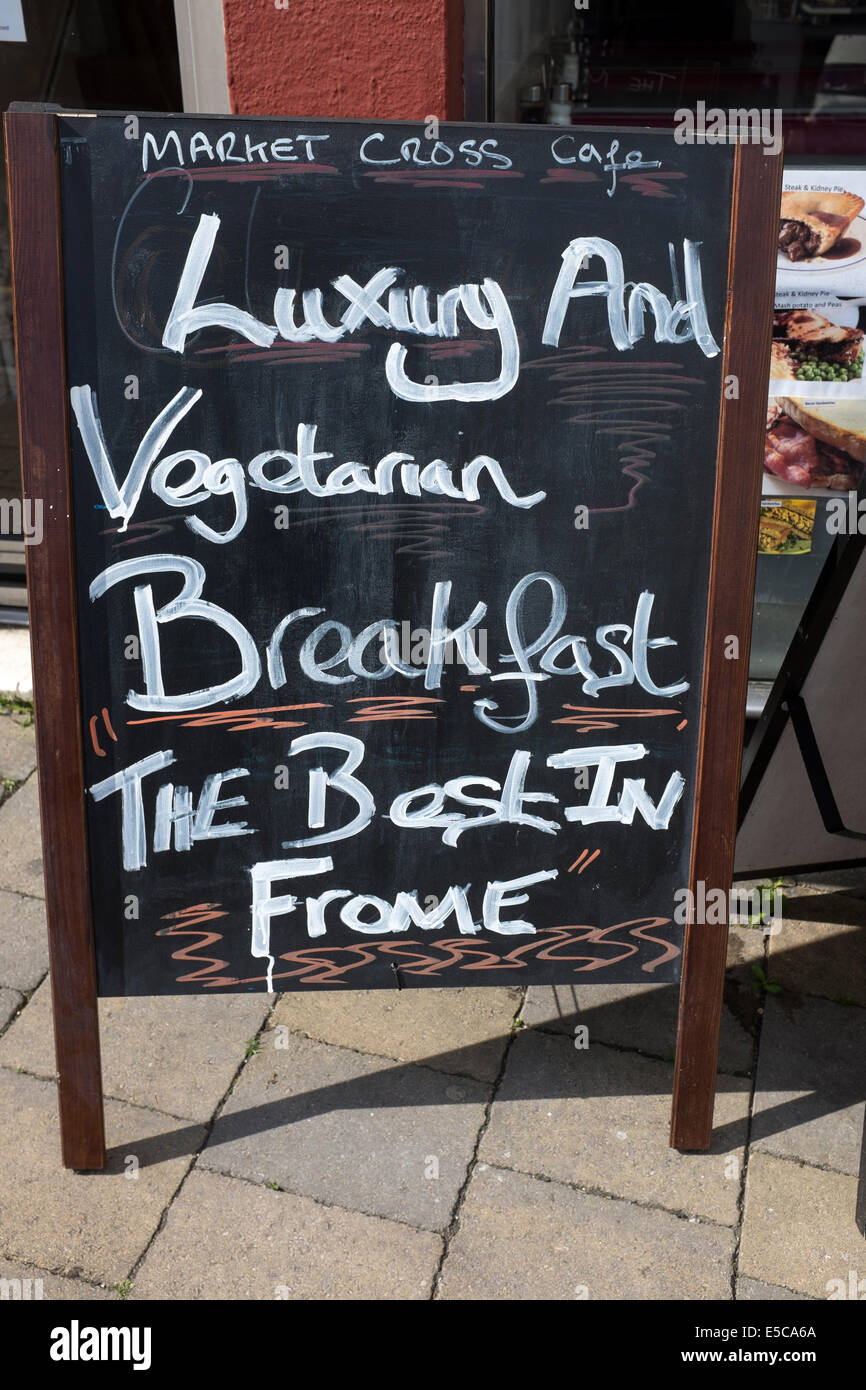 MARKET CROSS Cafe
Luxury And
Vegetarian
Breakfast
"THE BesT IN
FroME"
Steak & Kidney Pie
Steak & Kidney Pie
Mash potato and Peas
alamy
Image ID: E5CA6A
www.alamy.com